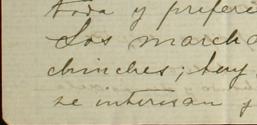 toda y prefere
Los marcha
chinches; hay
se internan y